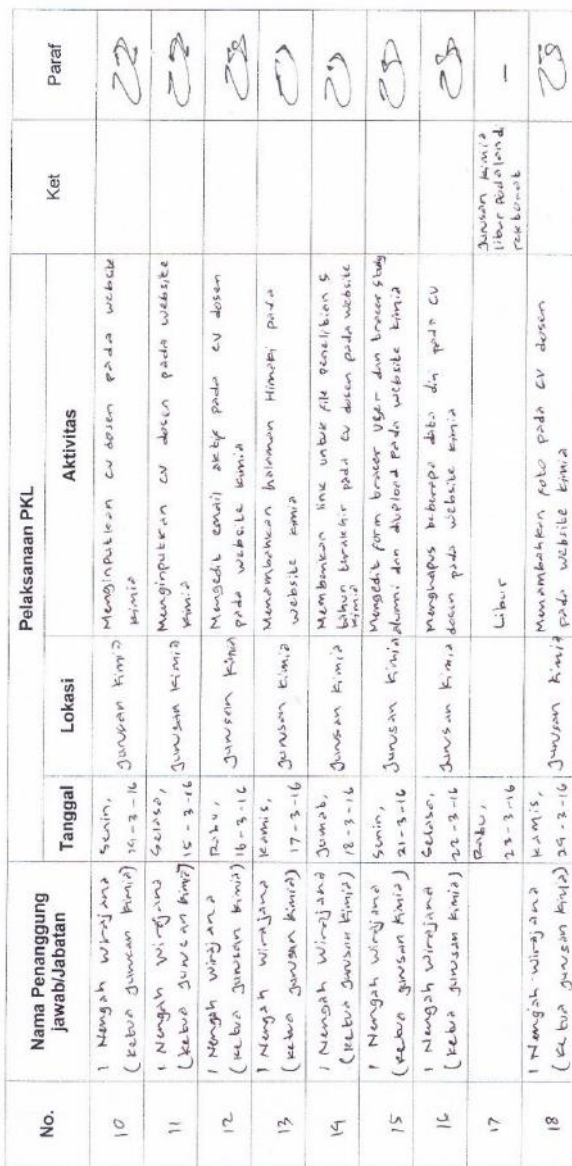 No.
Nama Penanggung
jawab/Jabatan
Pelaksanaan PKL
Tanggal
Lokasi
Aktivitas
Ket
Paraf
10
I Nengah Wirajana
(Ketua Jurusan Kimia)
Senin,
14-3-16
Jurusan Kimia
Menginputkan cv dosen pada website
kimia
11
I Nengah Wirajana
(Ketua Jurusan Kimia)
Selasa,
15-3-16
Jurusan Kimia
Menginputkan cv dosen pada website
kimia
12
I Nengah Wirajana
(Ketua Jurusan Kimia)
Rabu,
16-3-16
Jurusan Kimia
Mengedit email aktif pada cv dosen
pada website kimia
13
I Nengah Wirajana
(Ketua Jurusan Kimia)
Kamis,
17-3-16
Jurusan Kimia
Menambahkan halaman Himaki pada
website kimia
14
I Nengah Wirajana
(Ketua Jurusan Kimia)
Jumat,
18-3-16
Jurusan Kimia
Memberikan link untuk file penelitian 5
tahun terakhir pada cv dosen pada website
kimia
15
I Nengah Wirajana
(Ketua Jurusan Kimia)
Senin,
21-3-16
Jurusan Kimia
Mengedit form tracer user dan tracer study
alumni dan diupload pada website kimia
16
I Nengah Wirajana
(Ketua Jurusan Kimia)
Selasa,
22-3-16
Jurusan Kimia
Menghapus beberapa data diri pada cv
dosen pada website kimia
17
Rabu,
23-3-16
Libur
Jurusan Kimia
libur pada tand
rektorat
-
18
I Nengah Wirajana
(Ketua Jurusan Kimia)
Kamis,
24-3-16
Jurusan Kimia
Menambahkan foto pada cv dosen
pada website kimia